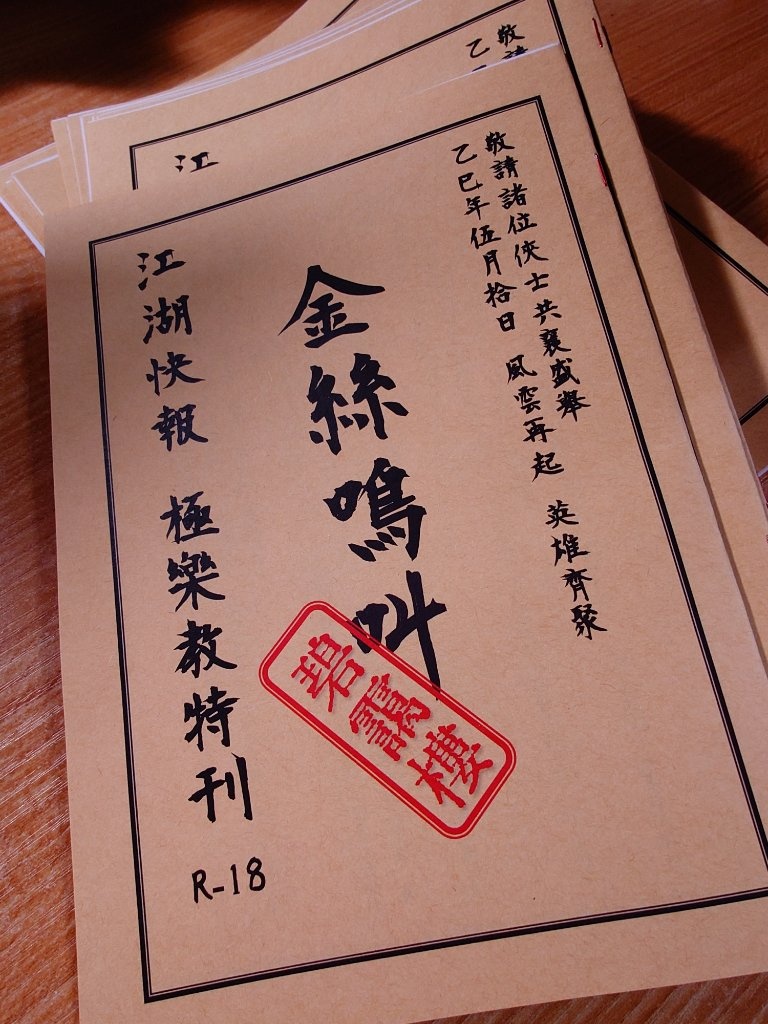 敬請諸位俠士共襄盛舉
乙巳年伍月拾日 風雲再起 英雄齊聚
金絲鳴叫
江湖快報 極樂教特刊
R-18
碧靄樓
敬請
乙
江